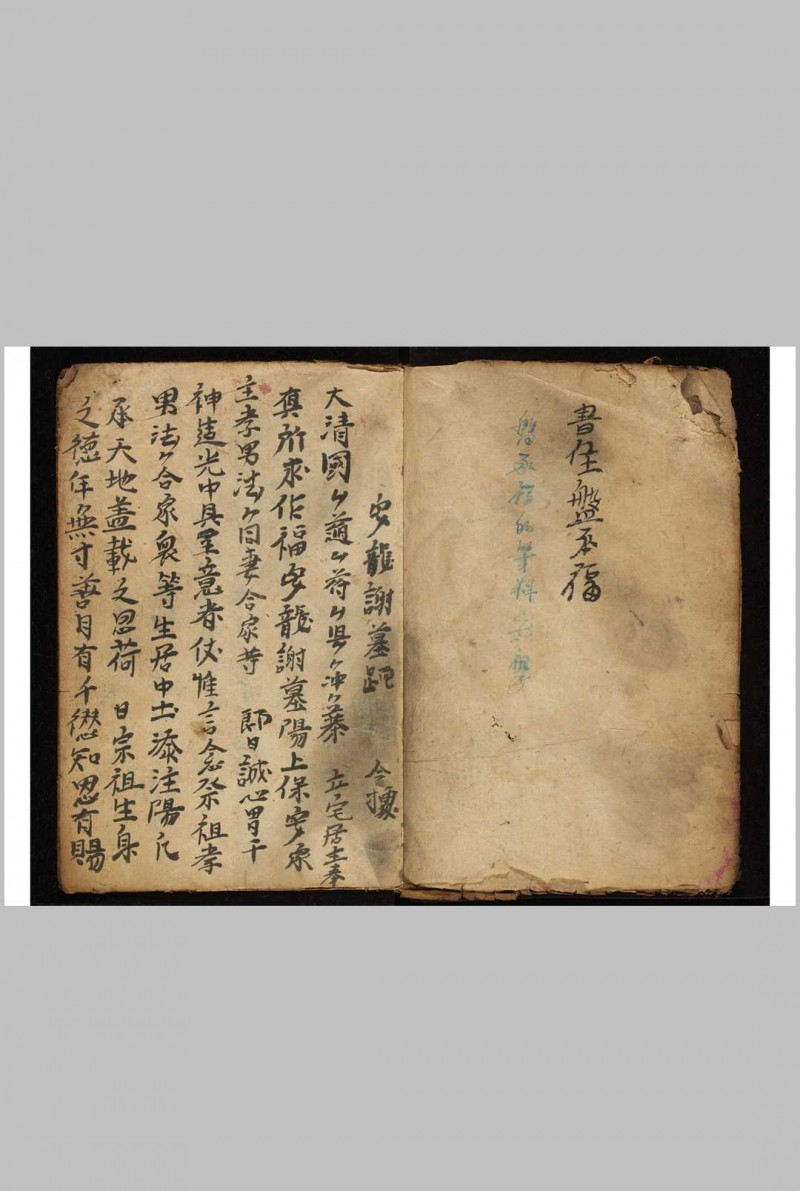 書主盤承福
盤承福的
安龍謝墓
今據
大清國ケ道ケ府ケ県ケ冲ケ寨 立宅居主奉
真所求作福安龍謝墓陽上保安家
主孝男法ケ同妻合家等 即日誠心冒干
神造光中具呈意者伏惟言念祭祖孝
男法ケ合家衆等生居中土添注陽元
承天地蓋載之恩荷 日宗祖生身
之徳年無寸善月有千愆知恩有賜